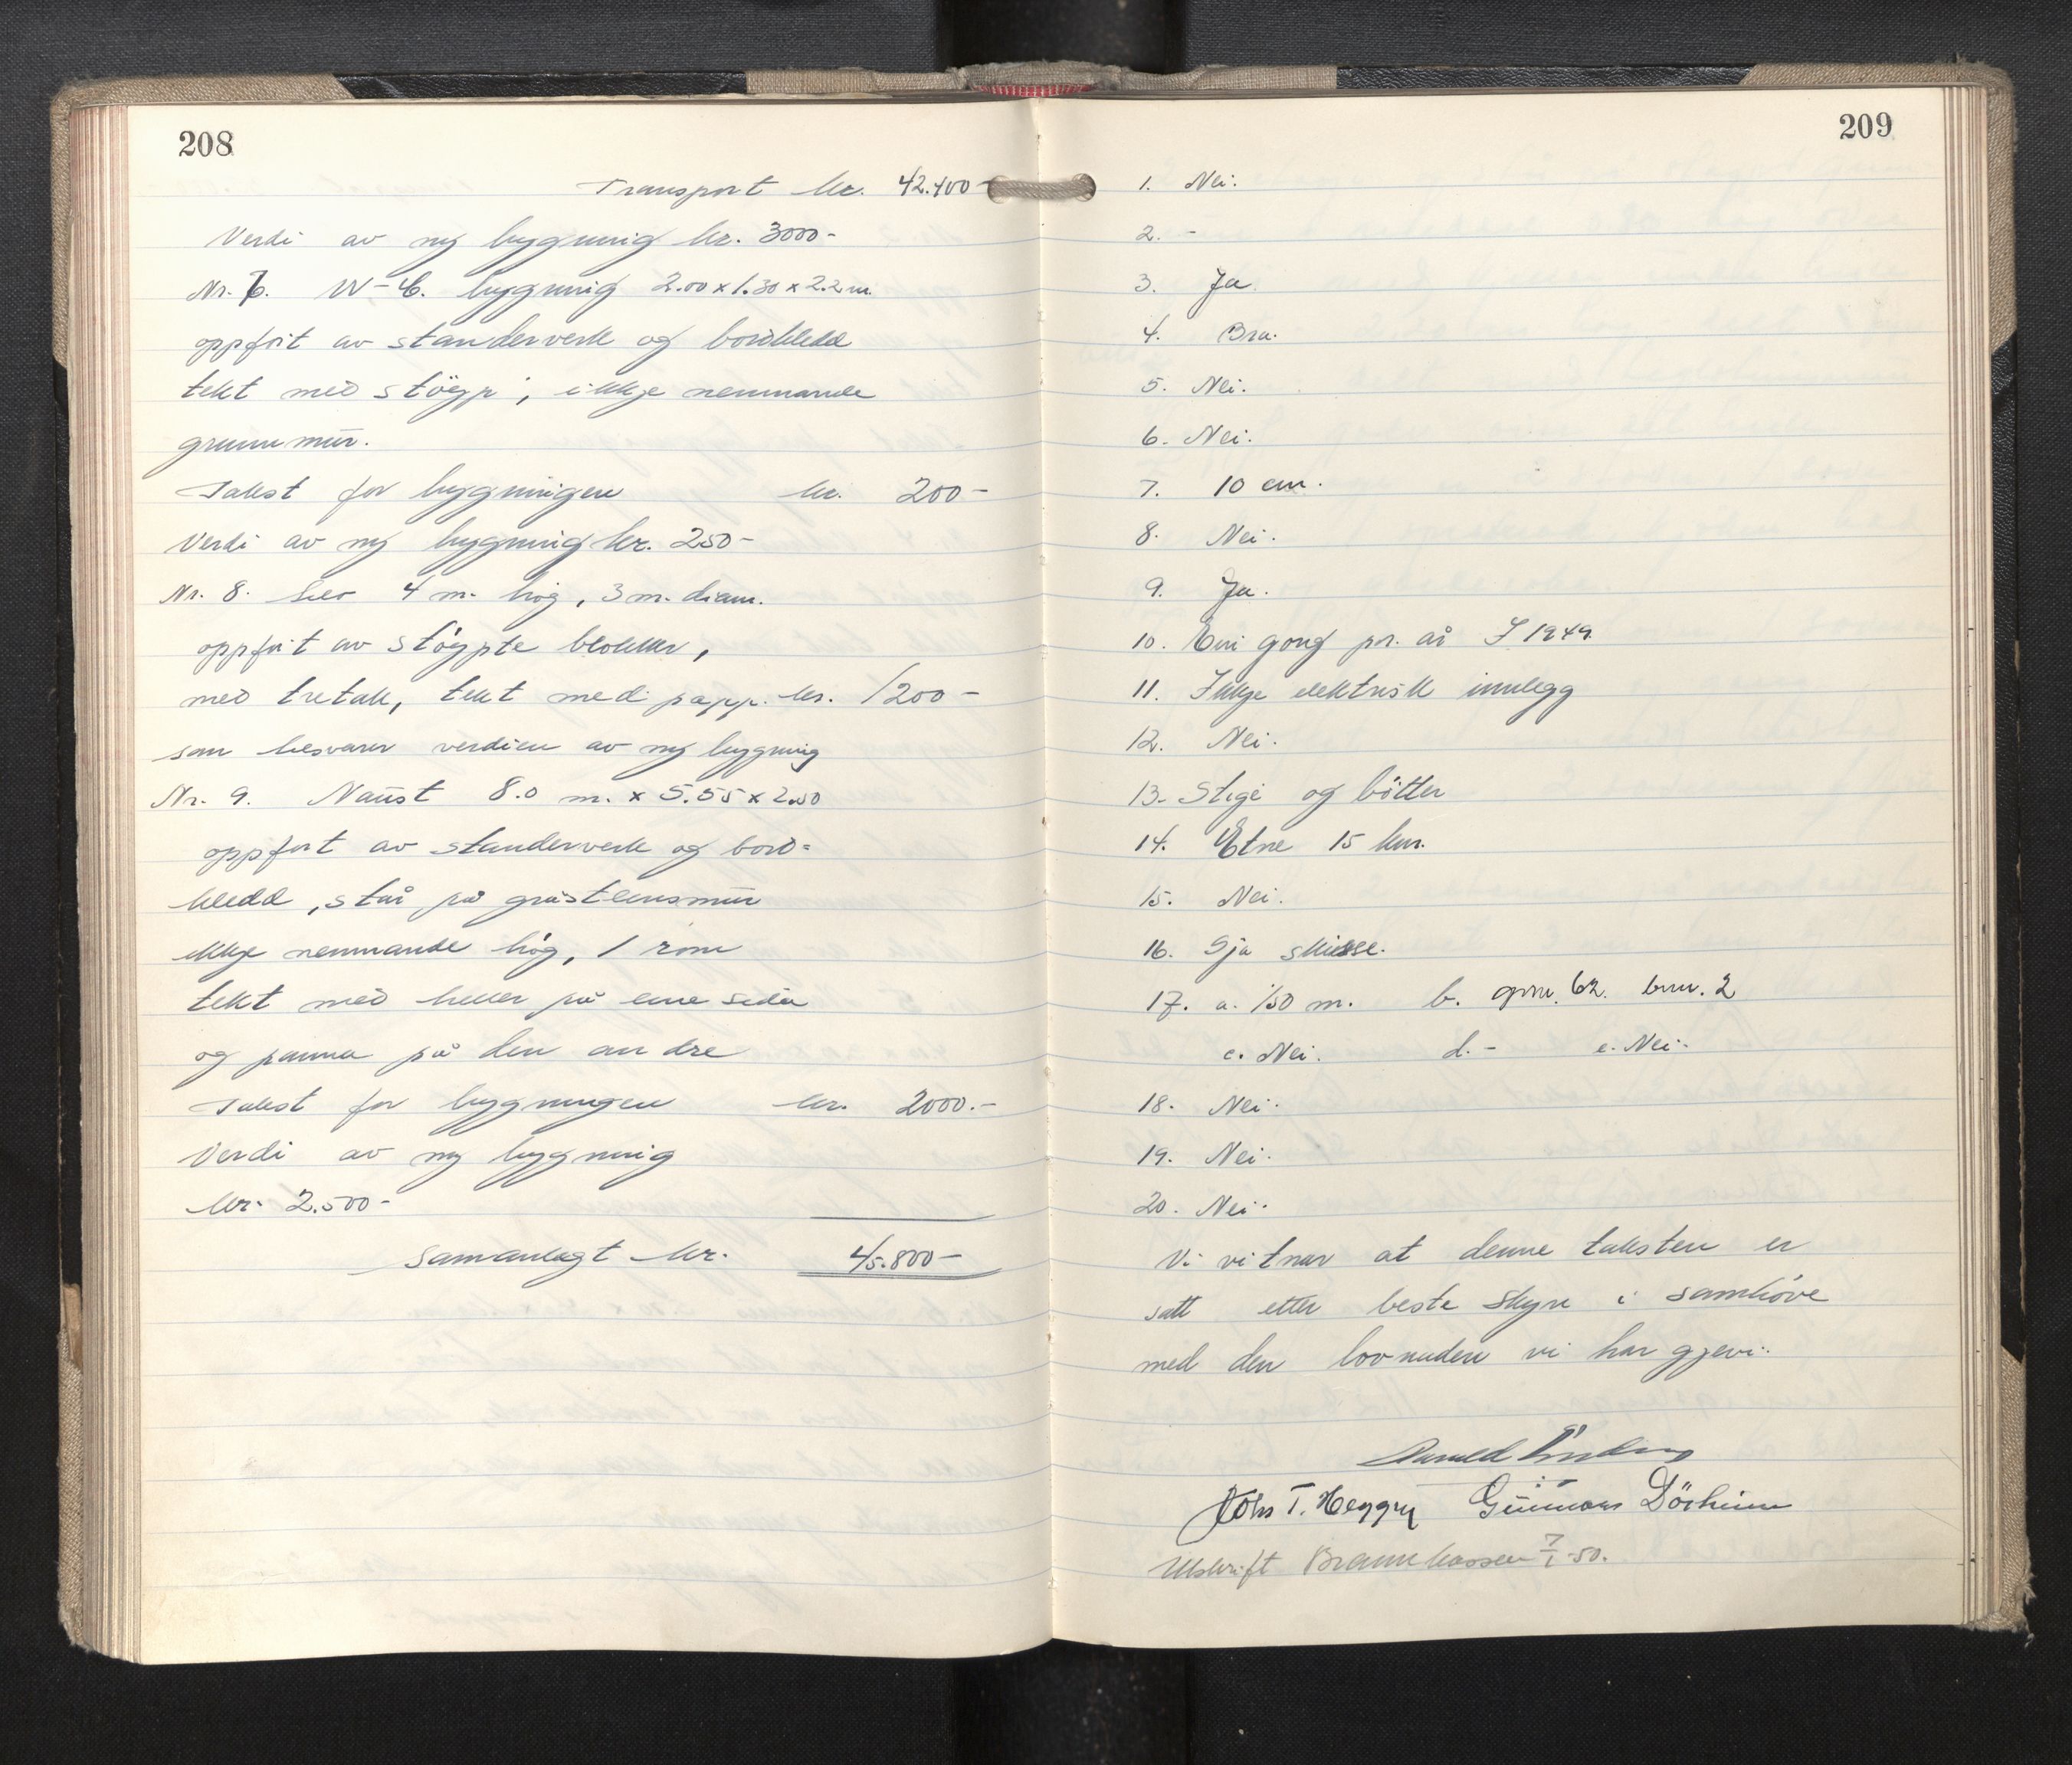 208
Transport kr. 42.400-
Verdi av ny bygning kr. 3000-
Nr. 7. W-C. bygning 2.00 x 1.30 x 2.2 m.
oppført av standerverk og bordkledd
tekt med støyp, ikkje nemnande
grunnmur.
Takst for bygningen kr. 200-
Verdi av ny bygning kr. 250-
Nr. 8. Silo 4 m. høg, 3 m. diam.
oppført av støypte blokker,
med tretak, tekt med papp. kr. 1200-
som besvarer verdien av ny bygning
Nr. 9. Naust 8.0 m. x 5.55 x 2.50
oppført av standerverk og bord=
kledd, står på gråsteinsmur
ikkje nemnande høg, 1 rom
tekt med heller på eine sida
og panna på den andre
Takst for bygningen kr. 2000.-
Verdi av ny bygning
kr. 2.500-
Samanlagt kr. 45.800-
209
1. Nei.
2. -
3. Ja.
4. Bra.
5. Nei.
6. Nei.
7. 10 cm.
8. Nei.
9. Ja.
10. Ein gong pr. år I 1949
11. Ikkje elektrisk innlegg
12. Nei.
13. Stige og bøtter
14. Etne 15 km.
15. Nei.
16. Sjå skisse.
17. a. 150 m. b. gnr. 62. bnr. 2
c. Nei. d. - e. Nei.
18. Nei.
19. Nei.
20. Nei.
Vi vitnar at denne taksten er
satt etter beste skyn i samhøve
med den lovnaden vi har gjevi.
Johs T. Heggen Gunnar Dörheim
Utskrift Brannkassen 7/1-50.